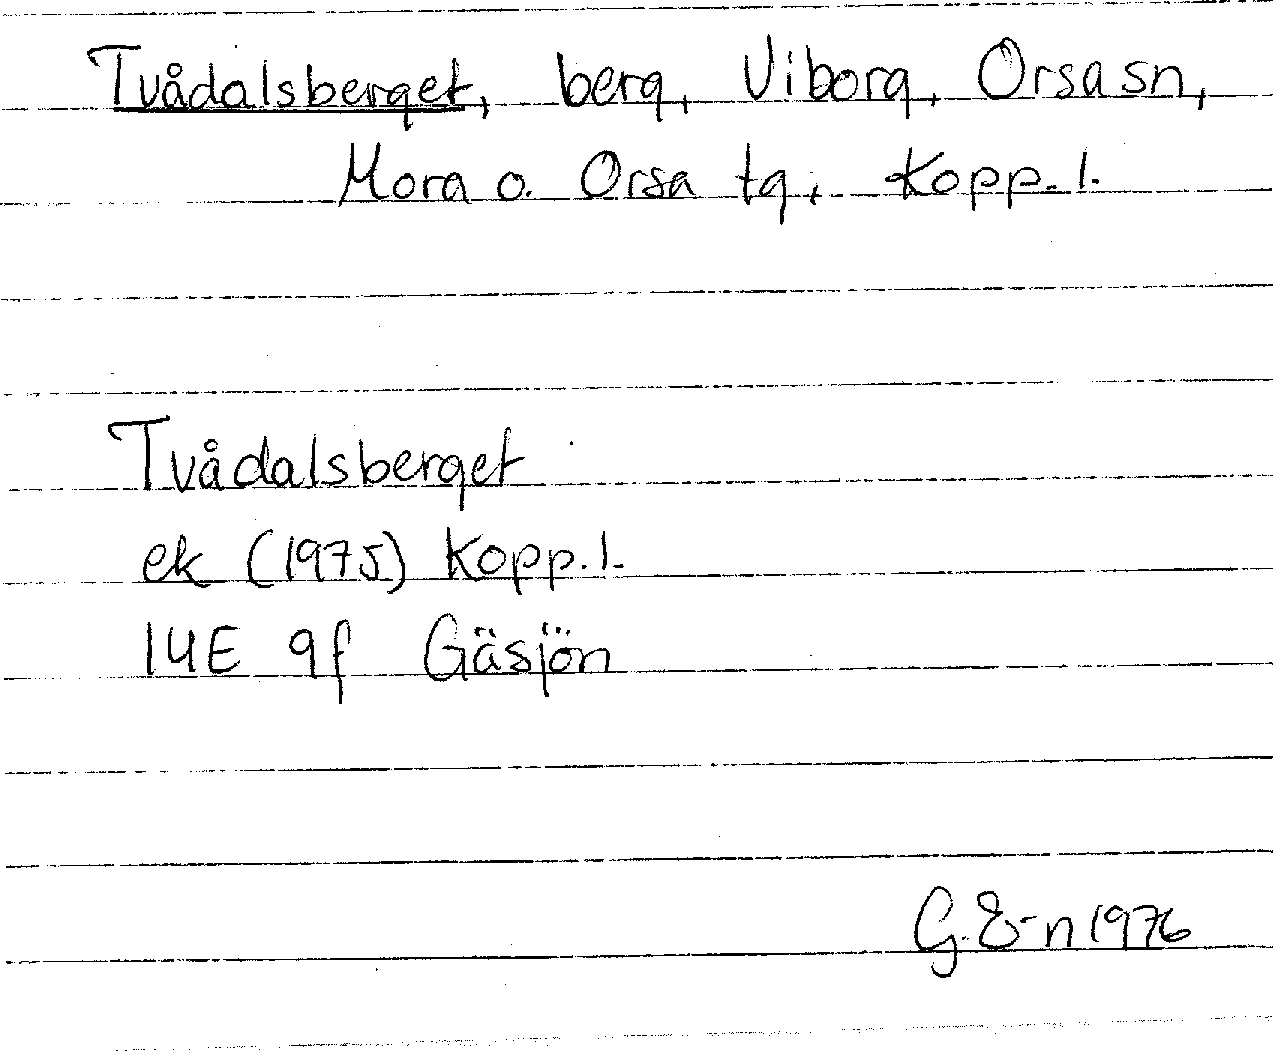 Tvådalsberget, berg, Viborg, Orsa sn,
Mora o. Orsa tg, Kopp. l.
Tvådalsberget
ek (1975) Kopp. l.
14E 9f Gäsjön
G. E-n 1976